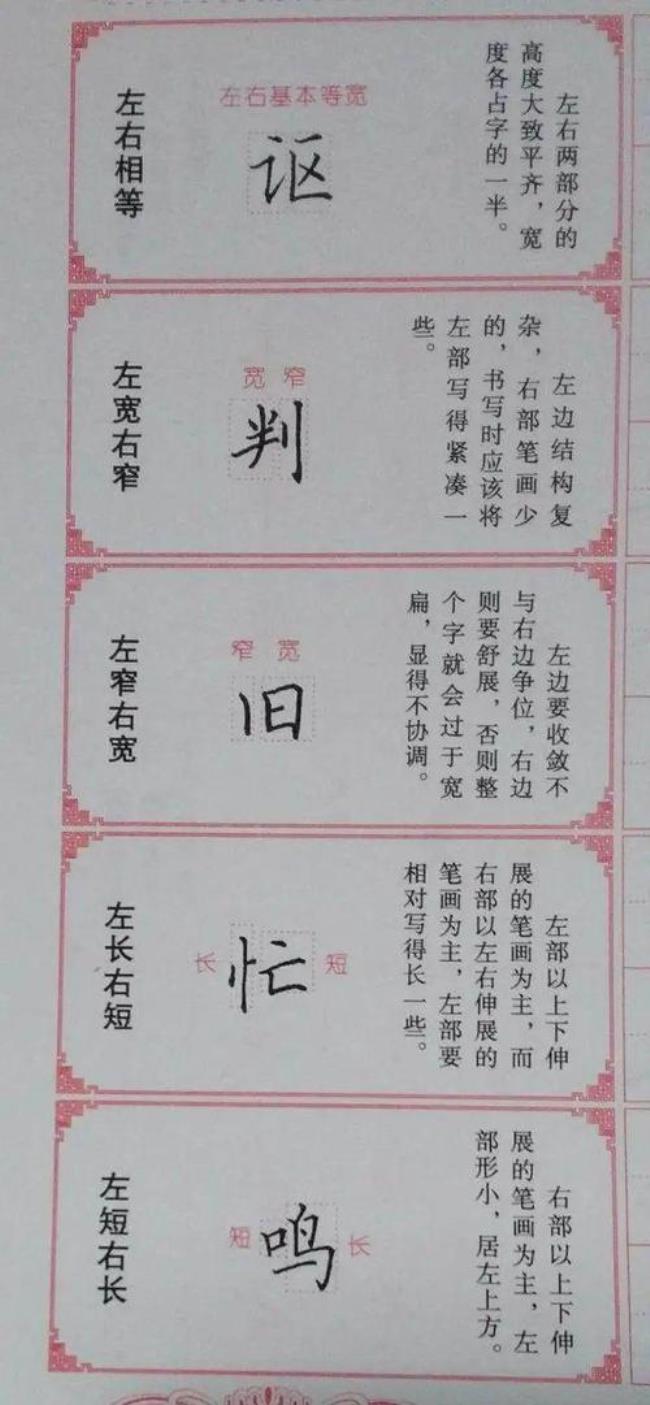 左右相等
左右基本等宽
讴
左右两部分的
高度大致平齐，宽
度各占字的一半。
左宽右窄
宽 窄
判
左边结构复
杂，右部笔画少
的，书写时应该将
左部写得紧凑一
些。
左窄右宽
窄 宽
旧
左边要收敛不
与右边争位，右边
则要舒展，否则整
个字就会过于宽
扁，显得不协调。
左长右短
长 忙 短
左部以上下伸
展的笔画为主，而
右部以左右伸展的
笔画为主，左部要
相对写得长一些。
左短右长
短 鸣 长
右部以上下伸
展的笔画为主，左
部形小，居左上方。